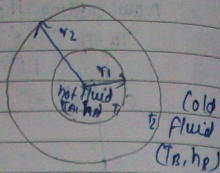 r2
r1
hot fluid
(TA, hA) T1
T2
Cold
fluid
(TB, hB)